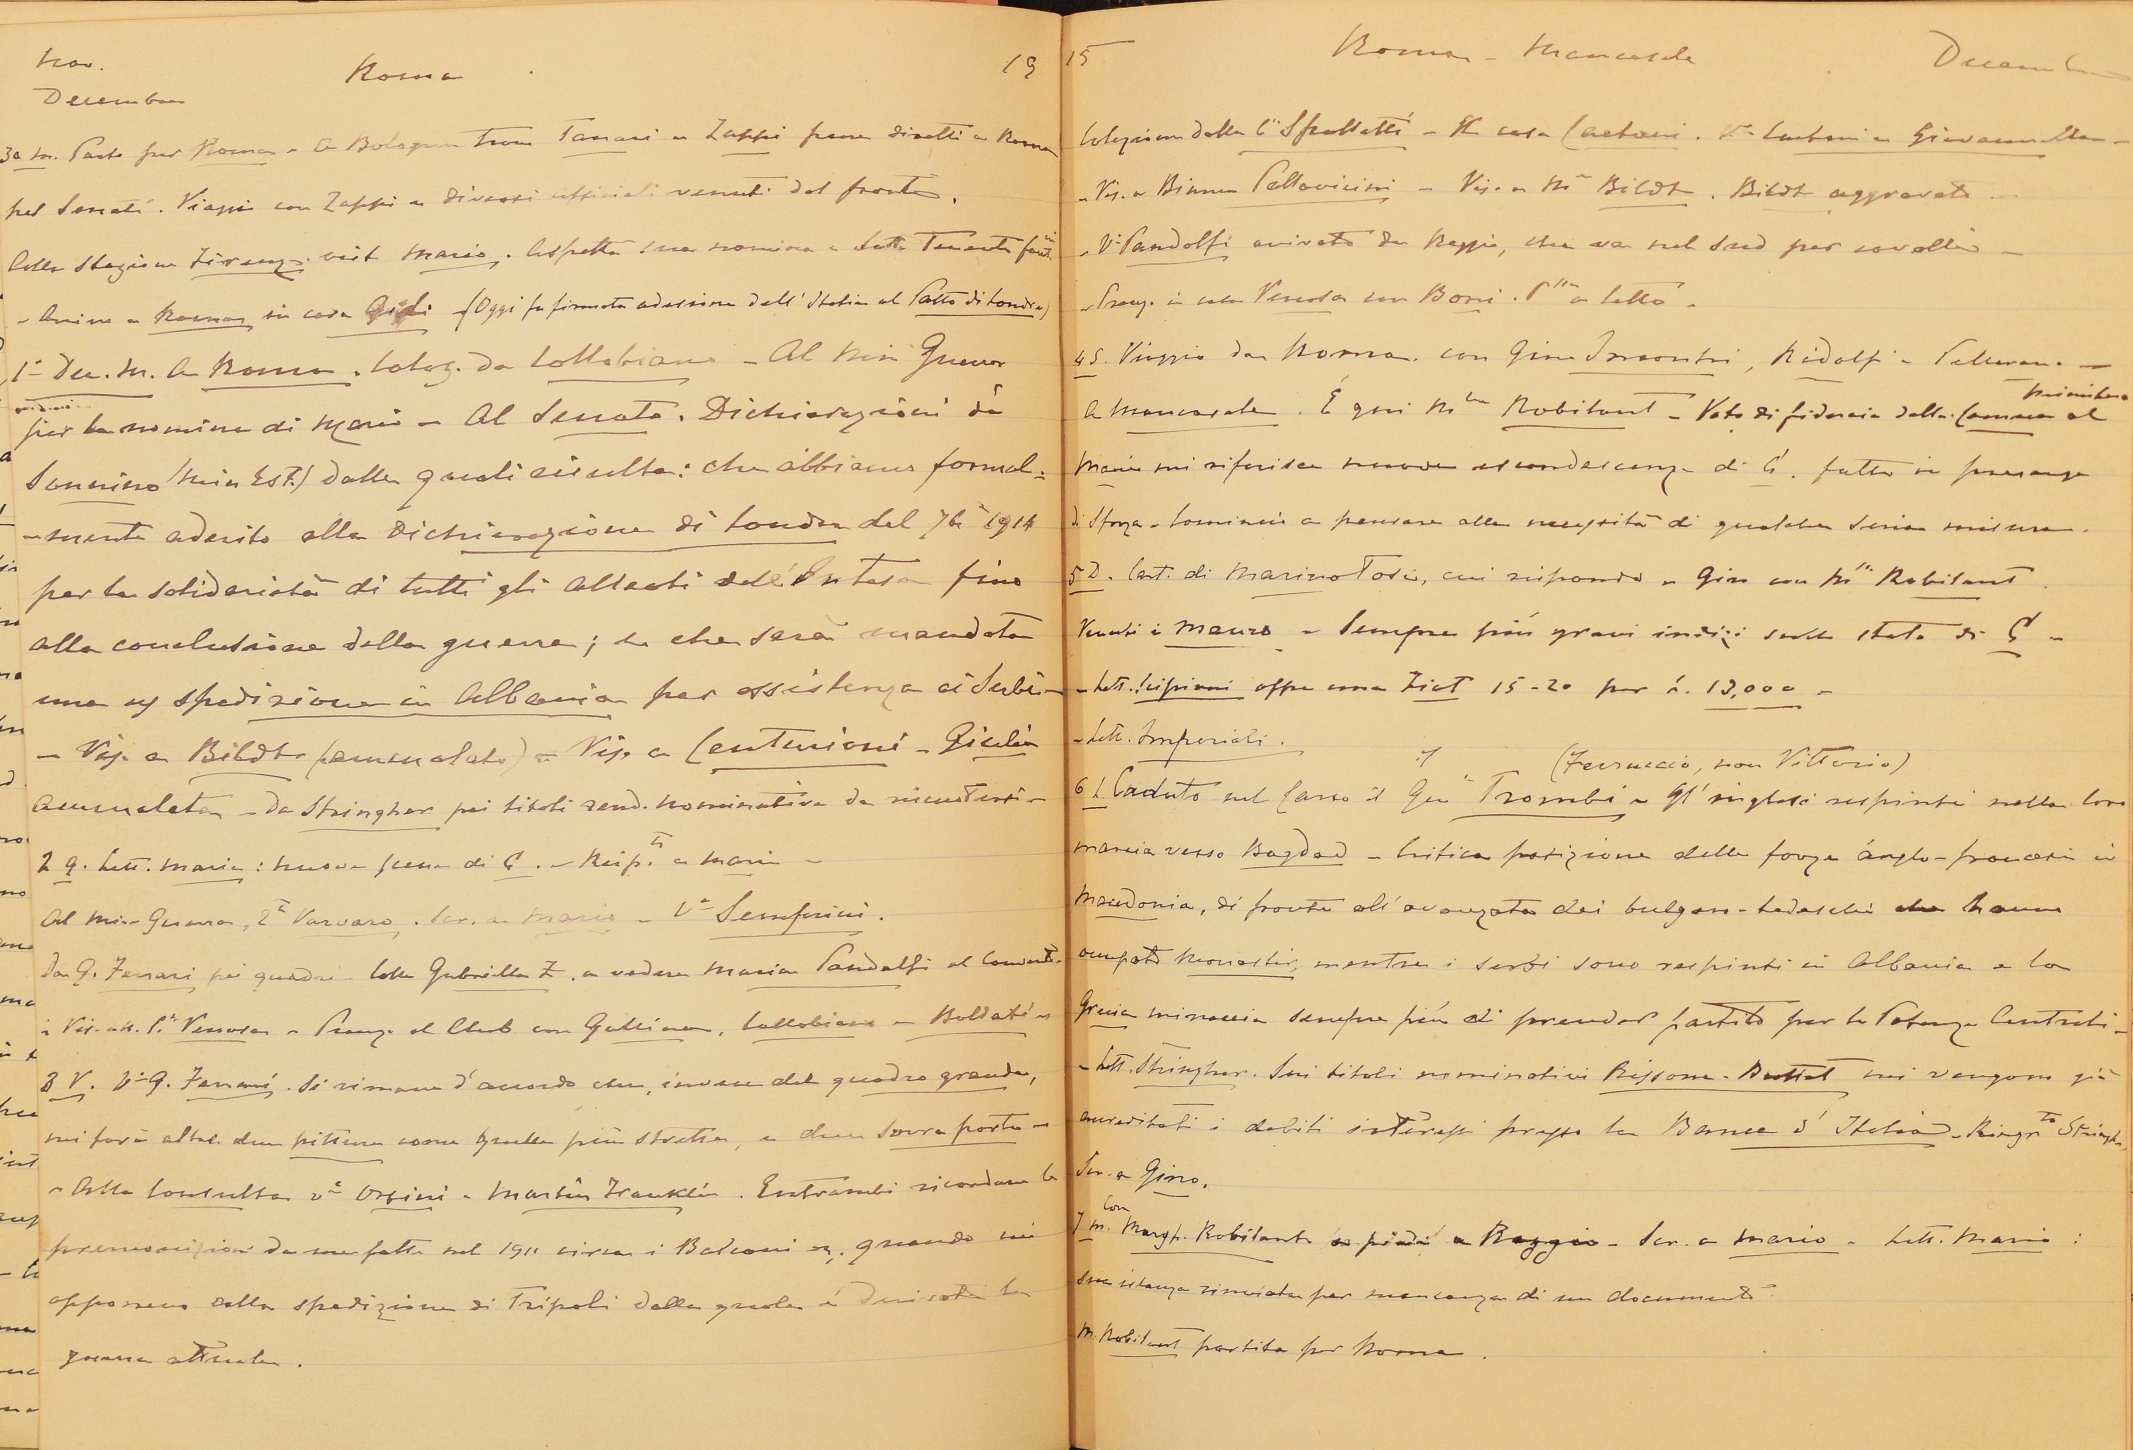 Nov.
Decembre
Roma
19
30 M. Parto per Roma - A Bologna trovo Tanari e Zappi pure diretti a Roma
pel Senato. Viaggio con Zappi e diversi ufficiali venuti dal fronte.
Alla stazione Firenze visto Mario. Aspetta sua nomina a Sotto Tenente fant.
- Arrivo a Roma, in casa (Oggi fu firmata adesione dell'Italia al Patto di Londra)
1° Dec. M. A Roma. Colaz. da Collobiano - Al Min Guerra
per la nomina di Mario - Al Senato. Dichiarazioni di
Sonnino (Min Est.) dalle quali risulta: che abbiamo formal-
-mente aderito alla Dichiarazione di Londra del 7bre 1914
per la solidarietà di tutti gli Alleati dell'Intesa fino
alla conclusione della guerra; e che sarà mandata
una spedizione in Albania per assistenza ai Serbi -
- Vis. a Bildt (ammalato) - Vis. a Centurioni - Giulia
ammalata - Da Stringher pei titoli rend. nominativa da
2 G. Lett. Maria: nuova scena di G. - Risp. a Maria -
Al Min Guerra, Varvaro. Scr. a Mario - Va Semprini.
Da G. Ferrari pei quadri - Colla Gabriella a vedere Maria Pandolfi al Convento.
Vis. a Venosa - Pranzo al Club con Gallina, Collobiano e Bollati -
3 V. Va G. Ferrari. Si rimane d'accordo che, invece del quadro grande,
mi farà altre due pitture come quella più stretta, e due sovra porte -
- Alla Consulta va Orsini e Martin Franklin. Entrambi ricordano le
premonizioni da me fatte nel 1911 circa i Balcani, quando mi
opponevo alla spedizione di Tripoli dalla quale è derivata la
guerra attuale.
15
Roma - Mancasale
Decembre
Colazione dalla Cssa Spalletti - In casa Caetani. Va Caetani e Giovannella -
- Vis. a Bianca Pallavicini - Vis. a Ma Bildt. Bildt aggravato -
- Va Pandolfi arrivato da Reggio, che va nel Sud per cavalli -
- Pranzo in casa Venosa con Boni. a letto -
4 S. Viaggio da Roma con Gino Incontri, Ridolfi e -
A Mancasale. È qui Mlla Robilant - Voto di fiducia della Camera al Ministero
Maria mi riferisce nuova escandescenza di G. fatta in presenza
di Sforza - Comincio a pensare alla necessità di qualche seria misura.
5 D. Cart. di Marino Tosi, cui rispondo - Giro con Mlla Robilant.
Venuti i Mauro - Sempre più gravi indizi sullo stato di G -
- Lett. Scipioni offre una Fiat 15-20 per £. 13,000 -
- Lett. Imperiali.
(Ferruccio, non Vittorio)
6 L. Caduto nel Carso il Gen Trombi - Gl'inglesi respinti nella loro
marcia verso Bagdad - Critica posizione delle forze anglo-francesi in
Macedonia, di fronte all'avanzata dei bulgaro-tedeschi che hanno
occupato Monastir, mentre i serbi sono respinti in Albania e la
Grecia minaccia sempre più di prender partito per le Potenze Centrali -
- Lett. Stringher. Sui titoli nominativi mi vengono già
accreditati i debiti interessi presso la Banca d'Italia - Ringrto Stringher,
Scr. a Gino.
7 M. Con Margh. Robilant a piedi a Reggio - Scr. a Mario - Lett. Mario:
sua istanza rinviata per mancanza di un documento.
M. Robilant partita per Roma.